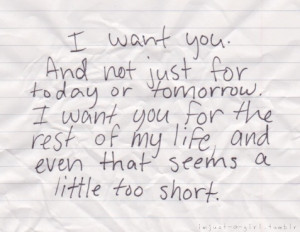 I want you.
And not just for
today or tomorrow.
I want you for the
rest of my life, and
even that seems a
little too short.